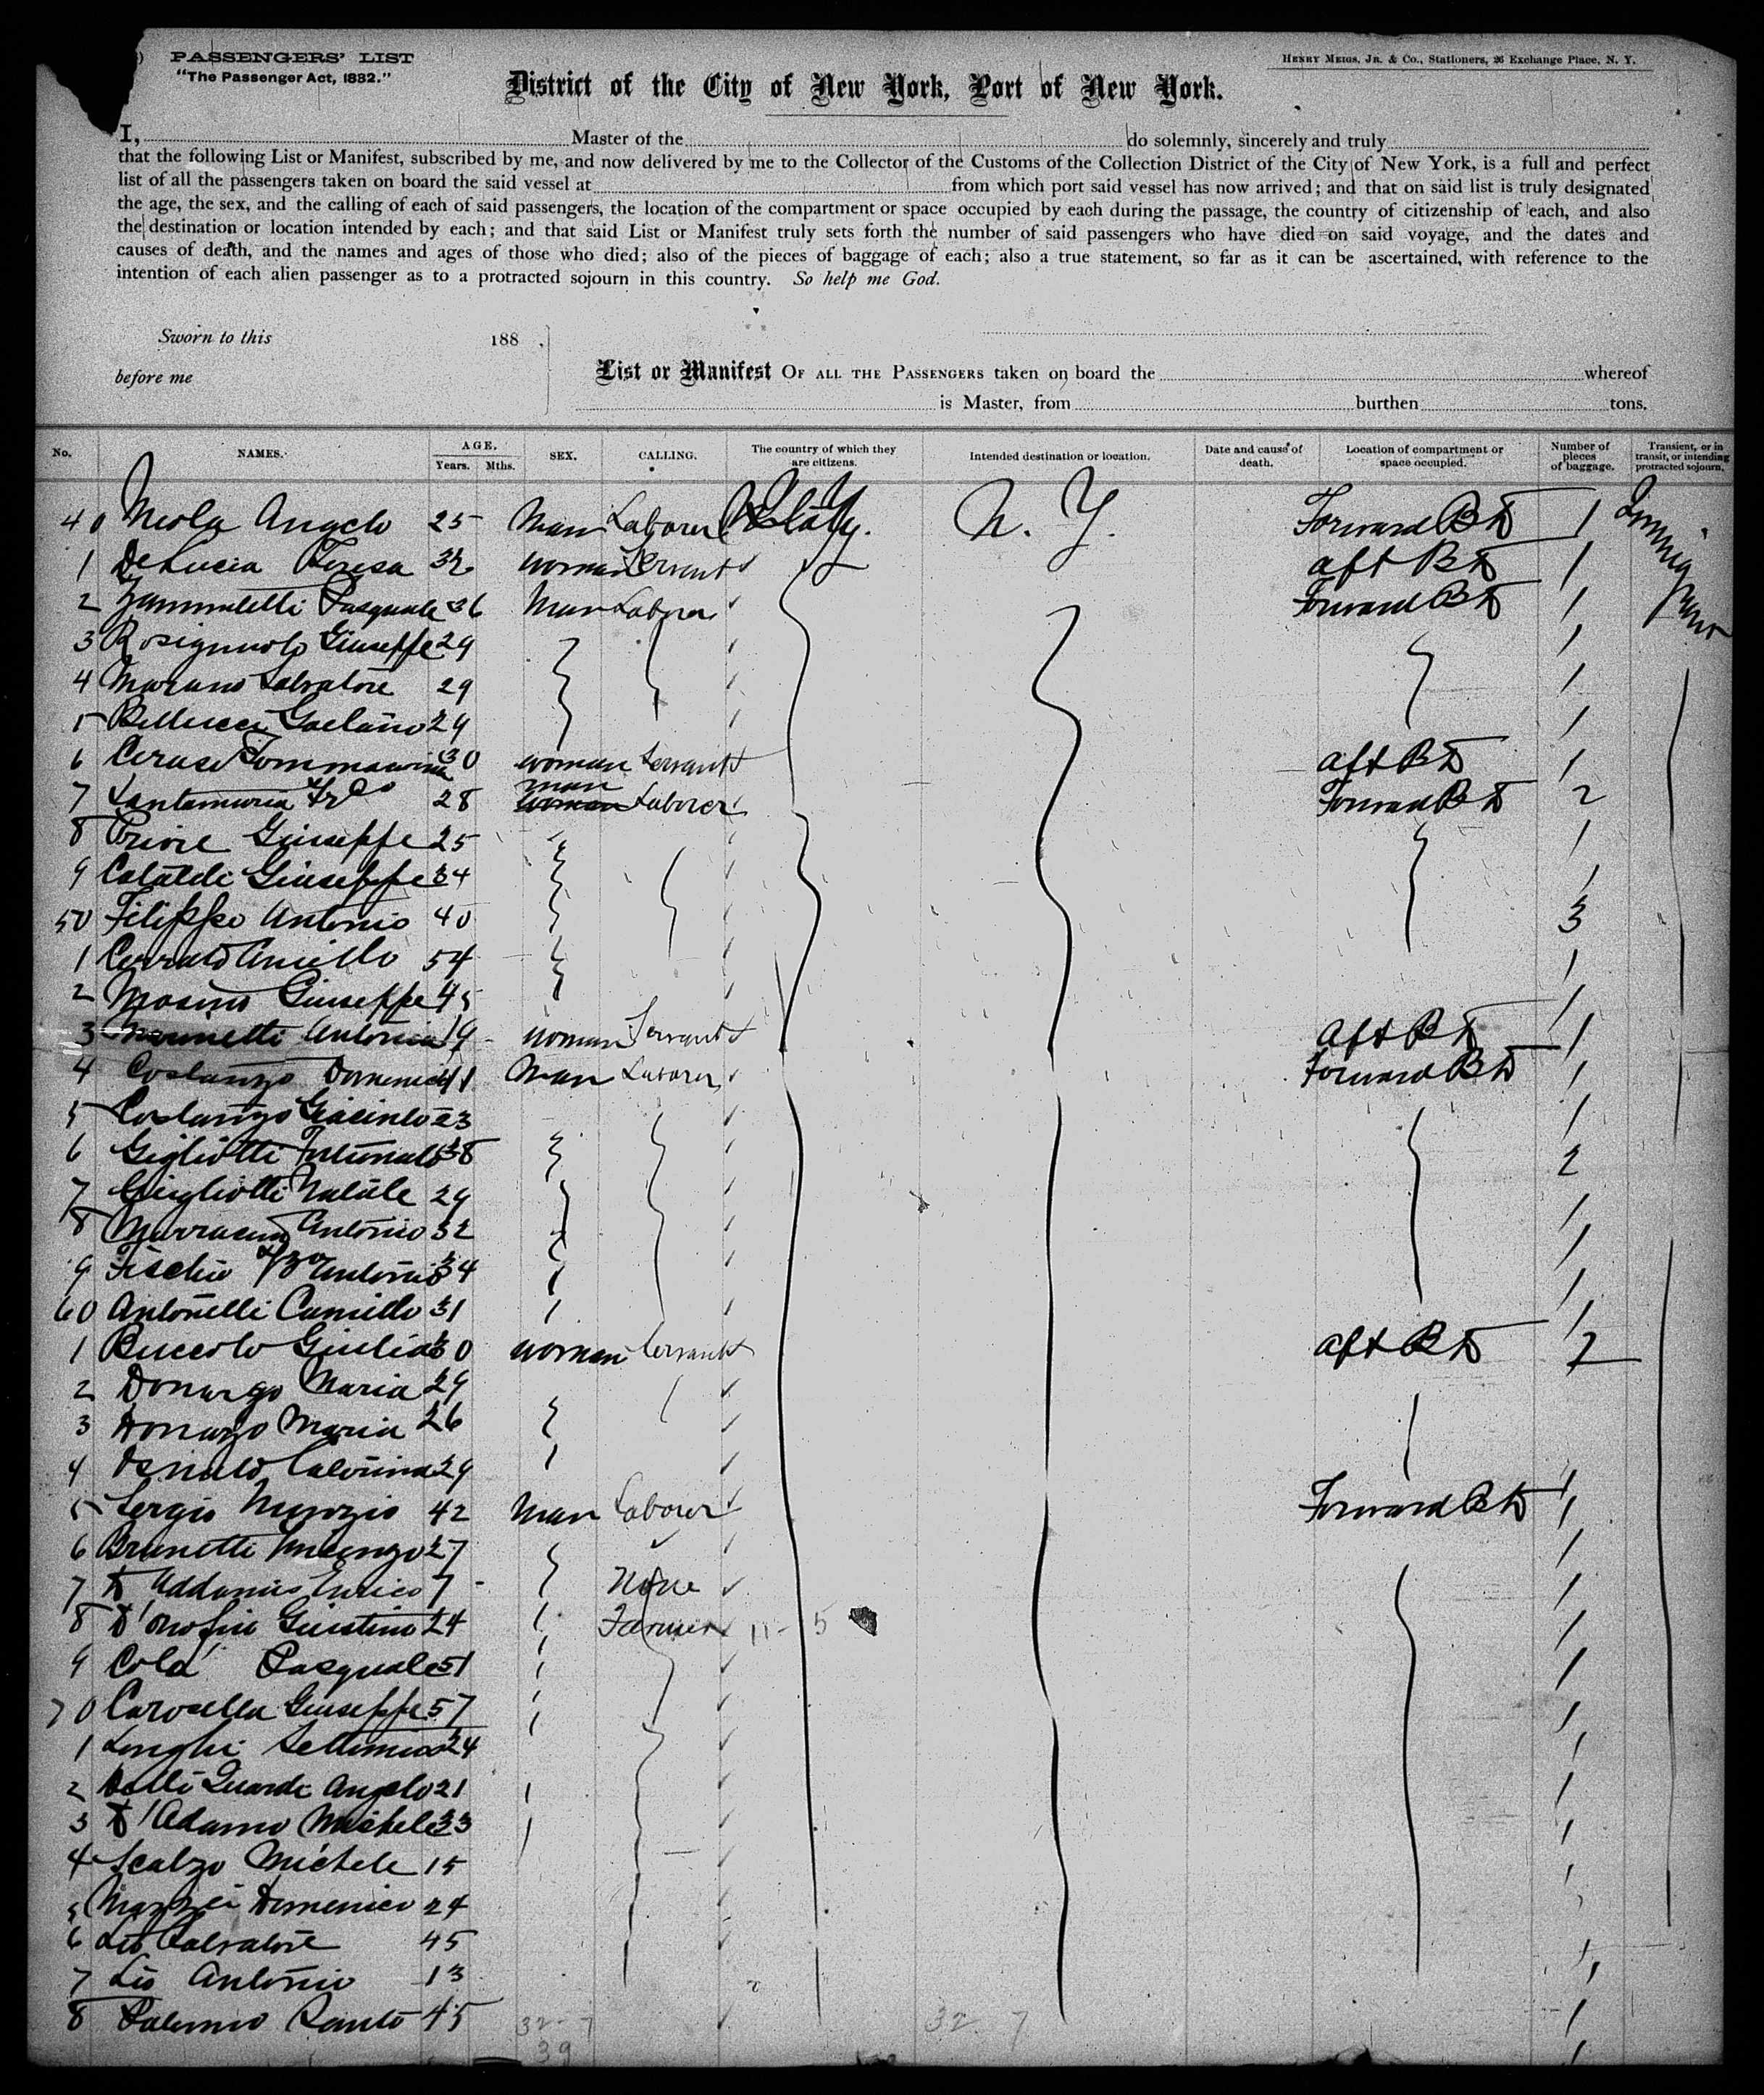 PASSENGERS' LIST
"The Passenger Act, 1882."
HENRY MEIGS, JR. & CO., Stationers, 26 Exchange Place, N. Y.
District of the City of New York, Port of New York.
I, Master of the do solemnly, sincerely and truly
that the following List or Manifest, subscribed by me, and now delivered by me to the Collector of the Customs of the Collection District of the City of New York, is a full and perfect
list of all the passengers taken on board the said vessel at from which port said vessel has now arrived; and that on said list is truly designated
the age, the sex, and the calling of each of said passengers, the location of the compartment or space occupied by each during the passage, the country of citizenship of each, and also
the destination or location intended by each; and that said List or Manifest truly sets forth the number of said passengers who have died on said voyage, and the dates and
causes of death, and the names and ages of those who died; also of the pieces of baggage of each; also a true statement, so far as it can be ascertained, with reference to the
intention of each alien passenger as to a protracted sojourn in this country. So help me God.
Sworn to this 188
before me
List or Manifest OF ALL THE PASSENGERS taken on board the whereof
is Master, from burthen tons.
No. NAMES. AGE. Years. Mths. SEX. CALLING. The country of which they are citizens. Intended destination or location. Date and cause of death. Location of compartment or space occupied. Number of pieces of baggage. Transient, or in transit, or intending protracted sojourn.
40 Meola Angelo 25 Man Laborer Italy. N. Y. Forward BD 1
1 De Lucia Teresa 32 woman Servant aft BD 1
2 Pasquale 36 Man Laborer Forward BD 1
3 Giuseppe 29 1
4 Marano Salvatore 29 1
5 Bellucci Gaetano 29 1
6 30 woman Servant aft BD 1
7 28 man woman Laborer Forward BD 2
8 Priore Giuseppe 25 1
9 Giuseppe 34 1
50 Filippo Antonio 40 3
1 Aniello 54 1
2 Masino Giuseppe 45 1
3 Antonia 19 woman Servant aft BD 1
4 Costanzo Domenico 41 Man Laborer Forward BD 1
5 Costanzo Giacinto 23 1
6 Gigliotti Fortunato 38 2
7 Guigliotti Natale 29 1
8 Antonio 32 1
9 Antonio 34 1
60 Antonelli Camillo 31 1
1 Buccolo Giulia 30 woman Servant aft BD 2
2 Donargo Maria 29
3 Maria 26
4 29 1
5 Sergio Nunzio 42 Man Laborer Forward BD 1
6 Brunetti Vincenzo 27 1
7 D'Addamio Enrico 7 None 1
8 D'Onofrio Giustino 24 Farmer 11 - 5 1
9 Cola' Pasquale 51 1
70 Carosella Giuseppe 57 1
1 Longhi Settimio 24 1
2 Delli Quardi Angelo 21 1
3 D'Adamo Michele 33 1
4 Scalzo Michele 15 1
5 Mazzei Domenico 24
6 Lio Salvatore 45 1
7 Lio Antonio 13 1
8 Palermo Santo 45 1
32 - 7 32 7
39